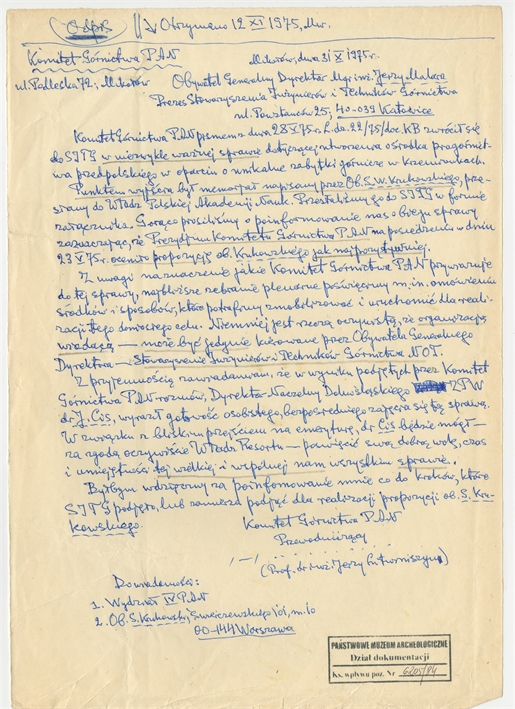 Odpis || ↓ Otrzymano 12 XI 1975, Mw.
Komitet Górnictwa PAN
Mikołów, dnia 31 X 1975 r.
ul. Podleska 72; Mikołów Obywatel Generalny Dyrektor Mgr inż. Jerzy Malara
Prezes Stowarzyszenia Inżynierów i Techników Górnictwa
ul. Powstańców 25; 40-039 Katowice
Komitet Górnictwa PAN pismem z dnia 28 V 75 r. L.dz. 22/75/doc.KB zwrócił się
do SITG w niezwykle ważnej sprawie dotyczącej utworzenia ośrodka pragórnic-
twa przedpolskiego w oparciu o unikalne zabytki górnicze w Krzemionkach.
Punktem wyjścia był memoriał napisany przez Ob. S.W. Krukowskiego, prze-
słany do Władz Polskiej Akademii Nauk. Przesłaliśmy go do SITG w formie
załącznika. Gorąco prosiliśmy o poinformowanie nas o biegu sprawy
zaznaczając, iż Prezydium Komitetu Górnictwa PAN na posiedzeniu w dniu
23 V 75 r. oceniło propozycję ob. Krukowskiego jak najpozytywniej.
Z uwagi na znaczenie jakie Komitet Górnictwa PAN przywiązuje
do tej sprawy, najbliższe zebranie plenarne poświęcimy m.in. omówieniu
środków i sposobów, które potrafimy zmobilizować i uruchomić dla reali-
zacji tego doniosłego celu. Niemniej jest rzeczą oczywistą, że organizacją
wiodącą — może być jedynie kierowane przez Obywatela Generalnego
Dyrektora — Stowarzyszenie Inżynierów i Techników Górnictwa NOT.
Z przyjemnością zawiadamiam, że w wyniku podjętych przez Komitet
Górnictwa PAN rozmów, Dyrektor Naczelny Dolnośląskiego ZPW
dr J. Cis, wyraził gotowość osobistego, bezpośredniego zajęcia się tą sprawą.
W związku z bliskim przejściem na emeryturę, dr Cis będzie mógł —
za zgodą oczywiście Władz Resortu — poświęcić swą dobrą wolę, czas
i umiejętności tej wielkiej i wspólnej nam wszystkim sprawie.
Byłbym wdzięczny za poinformowanie mnie co do kroków, które
SITG podjęło, lub zamierza podjąć dla realizacji propozycji ob. S. Kru-
kowskiego.
Komitet Górnictwa PAN
Przewodniczący
—/—
(Prof. dr inż. Jerzy Litwiniszyn)
Do wiadomości:
1. Wydział IV PAN
2. Ob. S. Krukowski, Świerczewskiego 101, m. 10
00-144 Warszawa
PAŃSTWOWE MUZEUM ARCHEOLOGICZNE
Dział dokumentacji
Ks. wpływu poz. Nr 6205/84